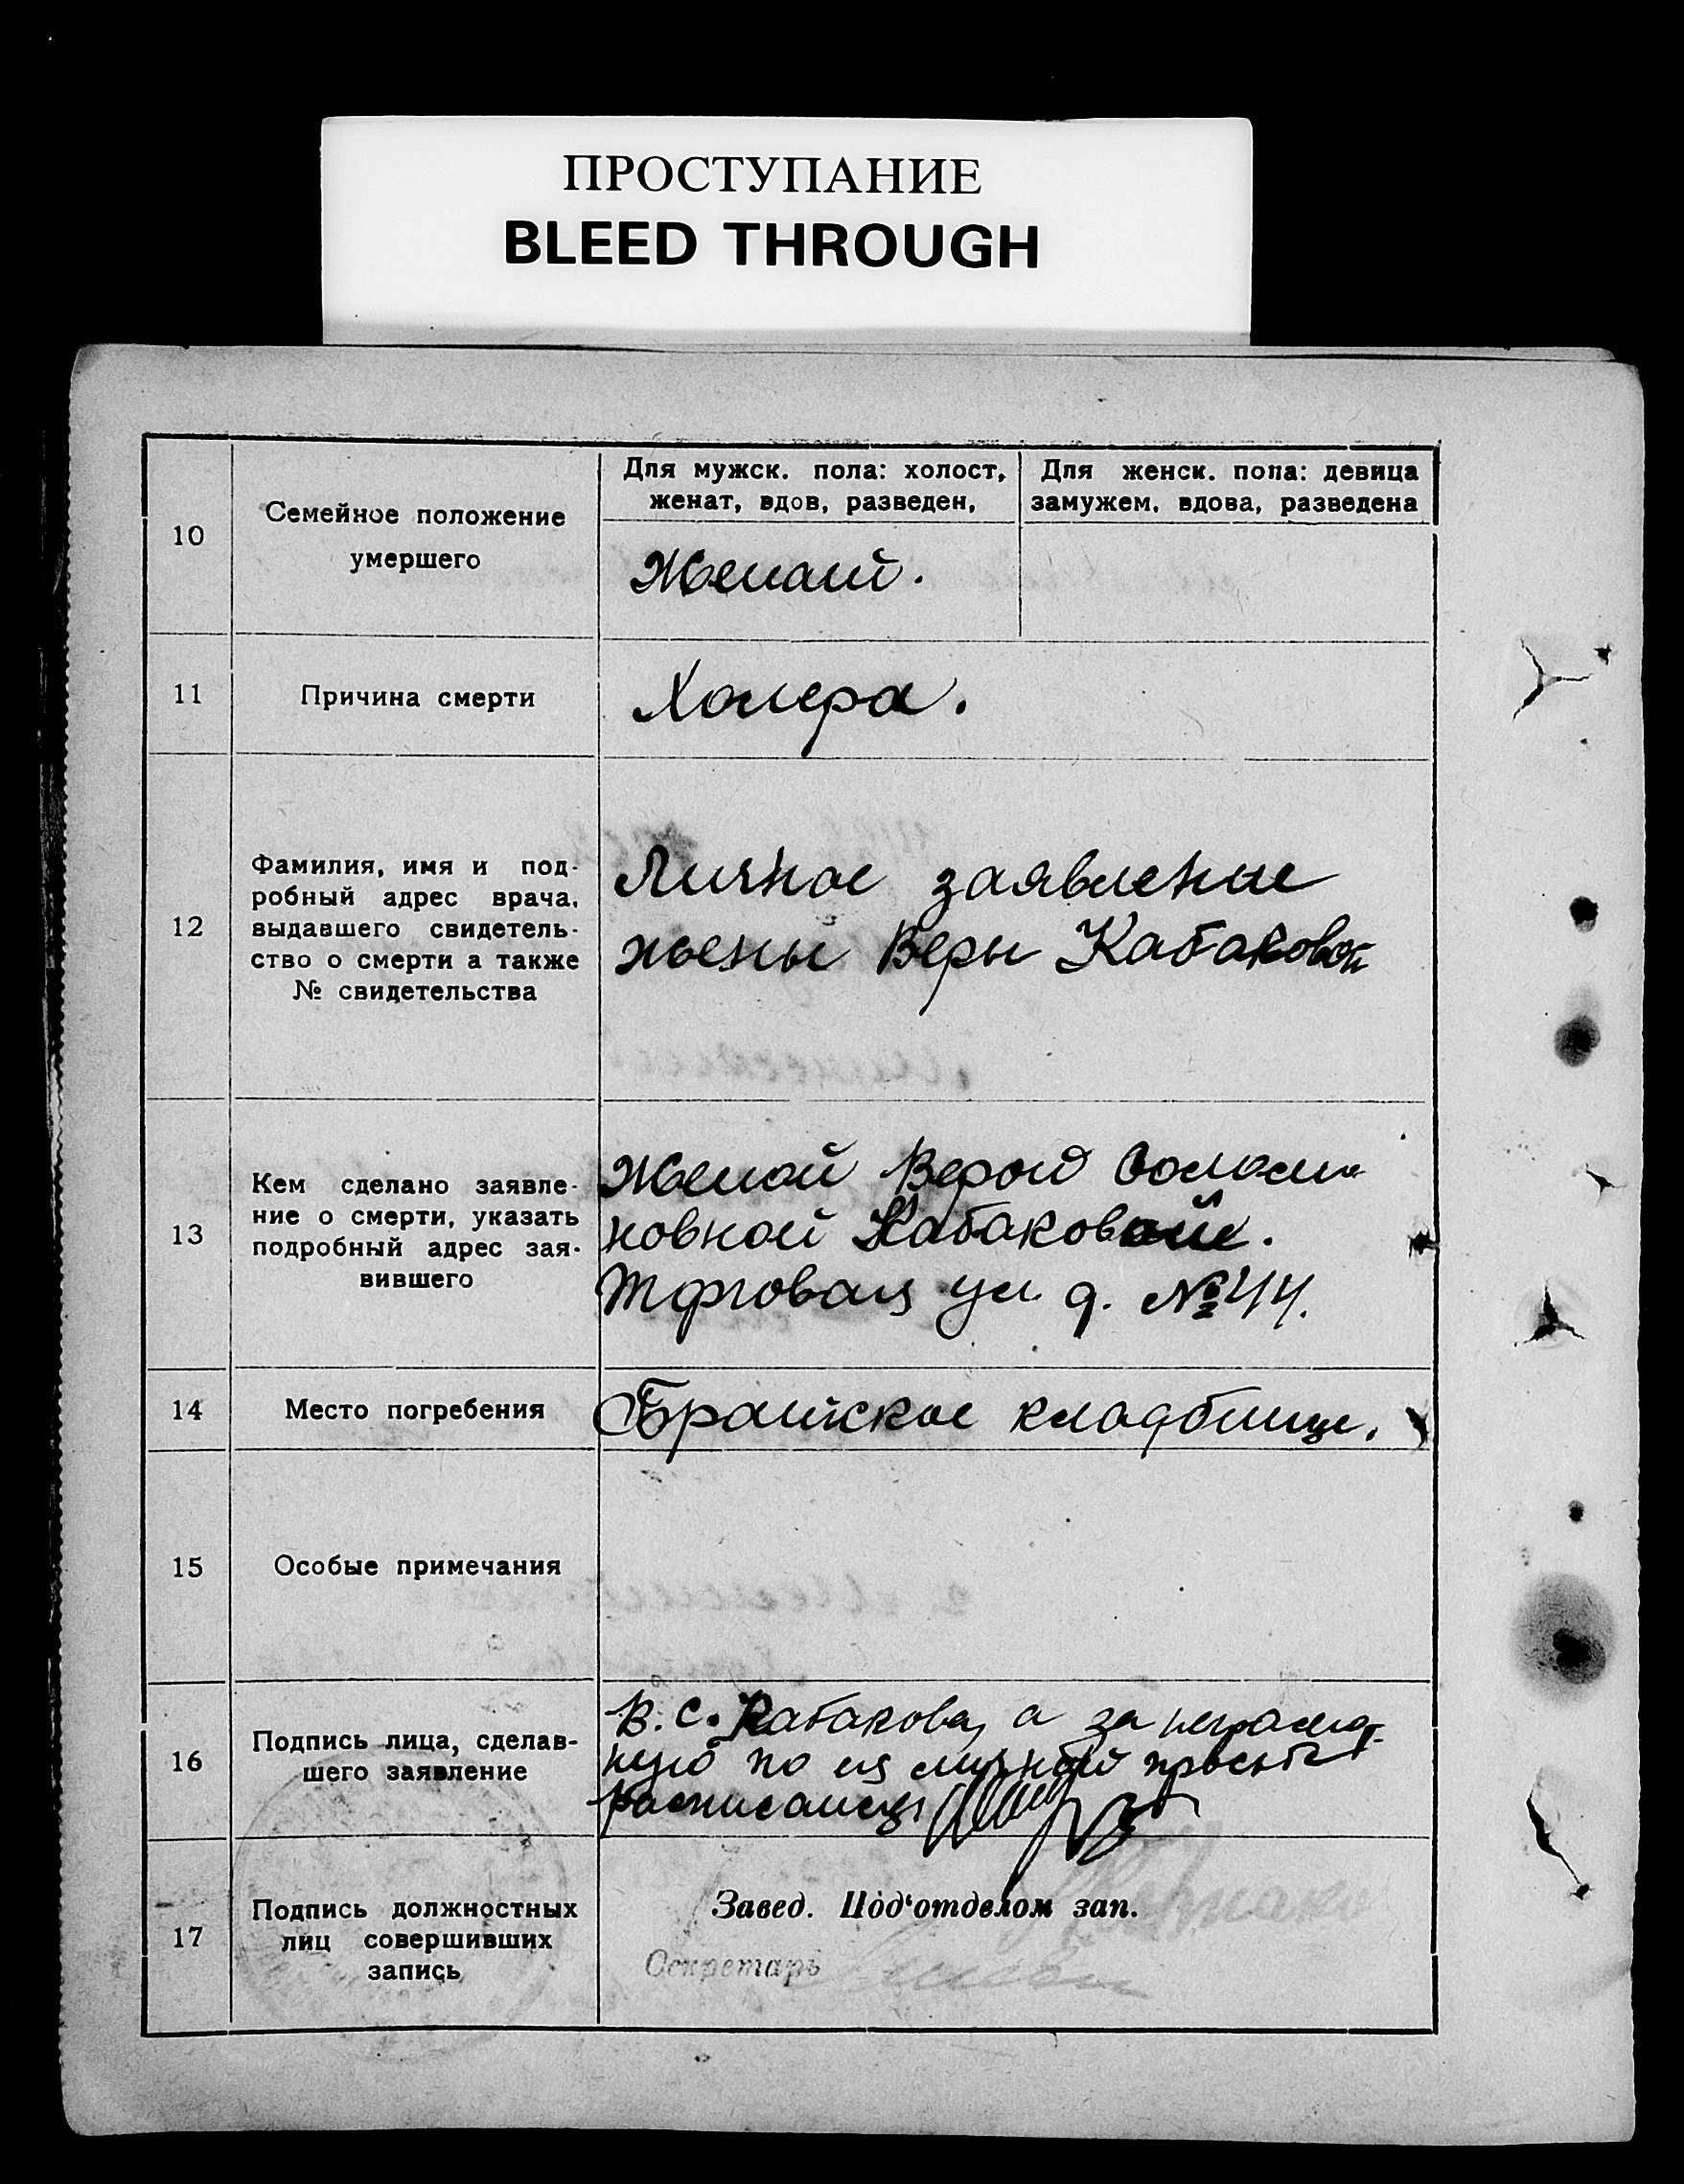 ПРОСТУПАНИЕ
BLEED THROUGH
10
Семейное положение
умершего
Для мужск. пола: холост,
женат, вдов, разведен,
Для женск. пола: девица
замужем, вдова, разведена
Женат.
11
Причина смерти
Холера.
12
Фамилия, имя и под-
робный адрес врача,
выдавшего свидетель-
ство о смерти а также
№ свидетельства
Личное заявление
жены Веры Кабаковой
13
Кем сделано заявле-
ние о смерти, указать
подробный адрес зая-
вившего
Женой Верой Соломо
новной Кабаковой.
Торговая ул д. № 44.
14
Место погребения
Братское кладбище.
15
Особые примечания
16
Подпись лица, сделав-
шего заявление
В. С. Кабакова, а за неграмот-
ную по ея личной просьбе
расписался
17
Подпись должностных
лиц совершивших
запись
Завед. Под‘отделом зап.
Секретарь